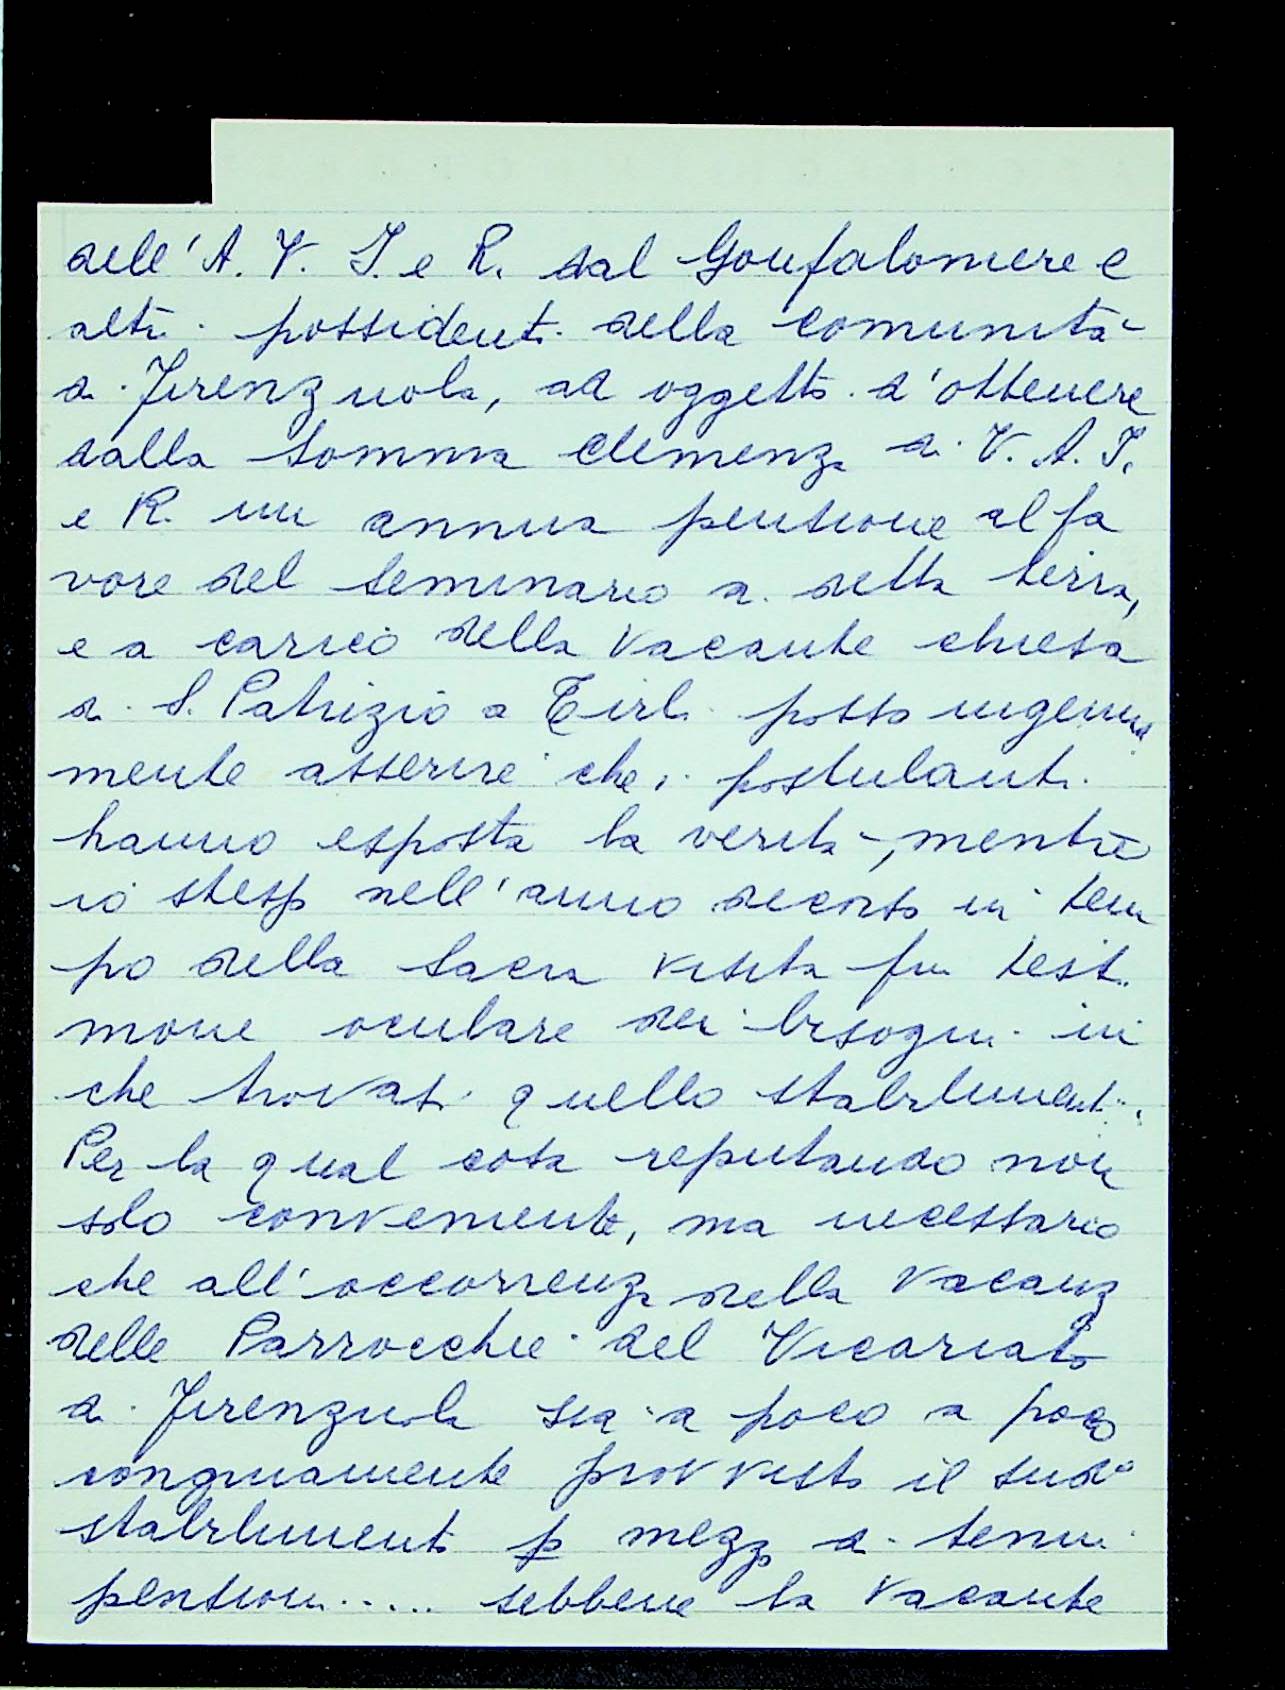 dell'A. V. I. e R. dal Gonfaloniere e
altri possidenti della comunità
di Firenzuola, ad oggetto d'ottenere
dalla somma clemenza di V. A. I.
e R. un annua pensione al fa
vore del seminario di detta terra,
e a carico della vacante chiesa
di S. Patrizio a Tirli posso ingenua
mente asserire che i postulanti
hanno esposta la verità, mentre
io stesso nell'anno decorso in tem
po della sacra visita fui testi
mone oculare dei bisogni in
che trovasi quello stabilimento.
Per la qual cosa reputando non
solo conveniente, ma necessario
che all'occorrenza della vacanza
delle Parrocchie del Vicariato
di Firenzuola sia a poco a poco
congruamente provvisto il sud°
stabilimento p mezzo di tenui
pensioni..... sebbene la vacante